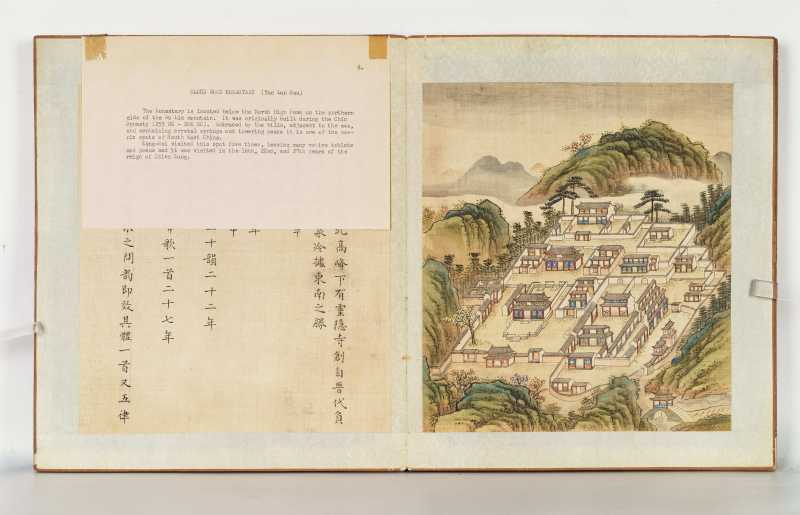 CLOUD WOOD MONASTERY (Yun Lin Ssu)
The monastery is located below the North High Peak on the northern
side of the Wu Lin mountain. It was originally built during the Chin
Dynasty (255 BC - 206 BC). Embraced by the hills, adjacent to the sea,
and containing crystal springs and towering peaks it is one of the sce-
nic spots of South East China.
Kang-hsi visited this spot five times, leaving many votive tablets
and poems and it was visited in the 16th, 22nd, and 27th years of the
reign of Chien Lung.
高峰下有靈隱寺創自晉代負
泉冷據東南之勝
年
年
十韻二十二年
歌一首二十七年
之間韻即效其體一首又五律